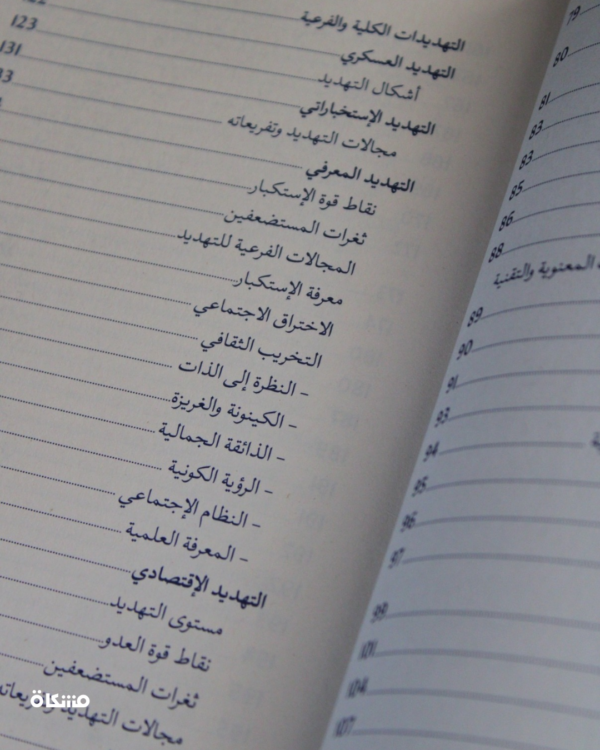 التهديدات الكلية والفرعية
التهديد العسكري 123
أشكال التهديد 131
التهديد الإستخباراتي
مجالات التهديد وتفريعاته
التهديد المعرفي
نقاط قوة الإستكبار
ثغرات المستضعفين
المجالات الفرعية للتهديد
معرفة الإستكبار
الاختراق الاجتماعي
التخريب الثقافي
- النظرة إلى الذات
- الكينونة والغريزة
- الذائقة الجمالية
- الرؤية الكونية
- النظام الإجتماعي
- المعرفة العلمية
التهديد الإقتصادي
مستوى التهديد
نقاط قوة العدو
ثغرات المستضعفين
مجالات التهديد وتفريعاته
مشكاة
79
80
81
83
83
85
86
88
المعنوية والتقنية
89
90
91
93
94
95
96
97
99
101
104
107